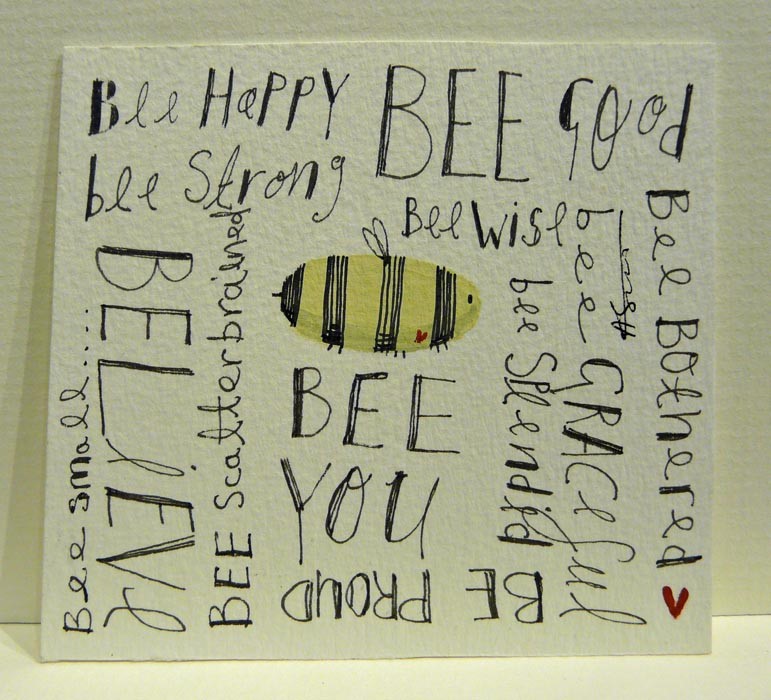 Bee HaPPY
BEE GOOd
bee Strong
Bee wise
BELiEVe
Bee small.....
BEE scatterbrained
BEE
YOU
bee SPlendid
bee GRACeful
Bee BOthered
BE PROUD